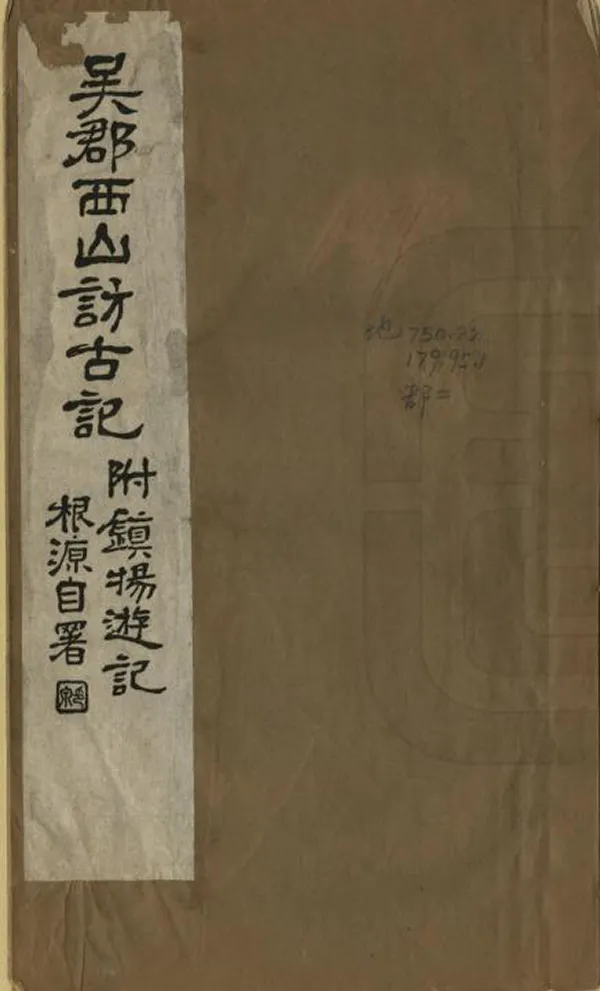 吴郡西山訪古記
附鎮揚遊記
根源自署
地 750.22
179.951
部二